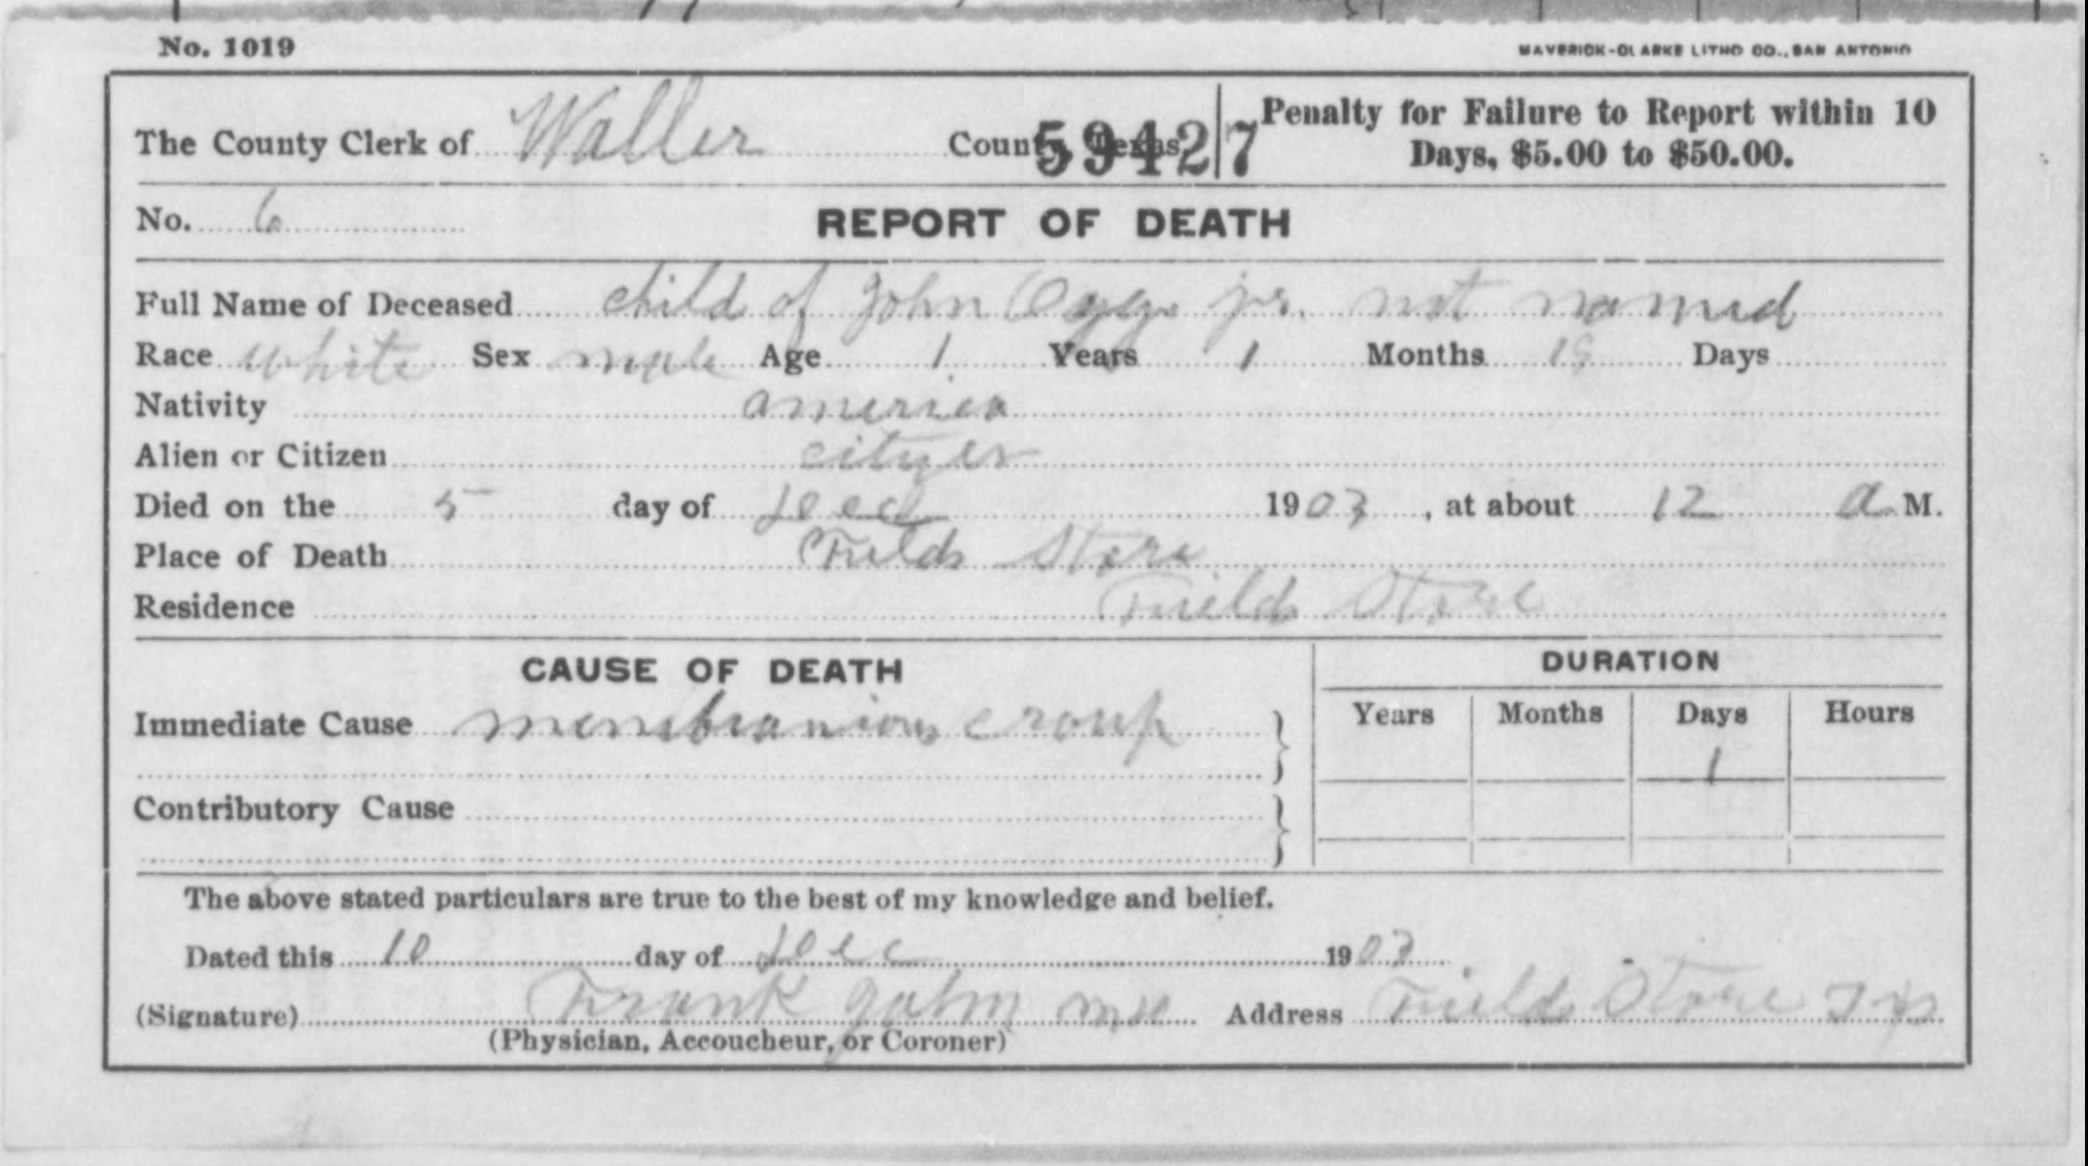 No. 1019 MAVERICK-CLARKE LITHO CO., SAN ANTONIO
The County Clerk of Waller County, Texas. 59427 Penalty for Failure to Report within 10
Days, $5.00 to $50.00.
No. 6 REPORT OF DEATH
Full Name of Deceased child of John Ogg jr. not named
Race white Sex male Age 1 Years 1 Months 19 Days
Nativity america
Alien or Citizen cityen
Died on the 5 day of Dec 1903, at about 12 a M.
Place of Death Fields Store
Residence Fields Store
CAUSE OF DEATH DURATION
Years Months Days Hours
Immediate Cause membranious croup 1
Contributory Cause
The above stated particulars are true to the best of my knowledge and belief.
Dated this 10 day of Dec 1903
(Signature) Frank MD Address Fields Store Tx
(Physician, Accoucheur, or Coroner)